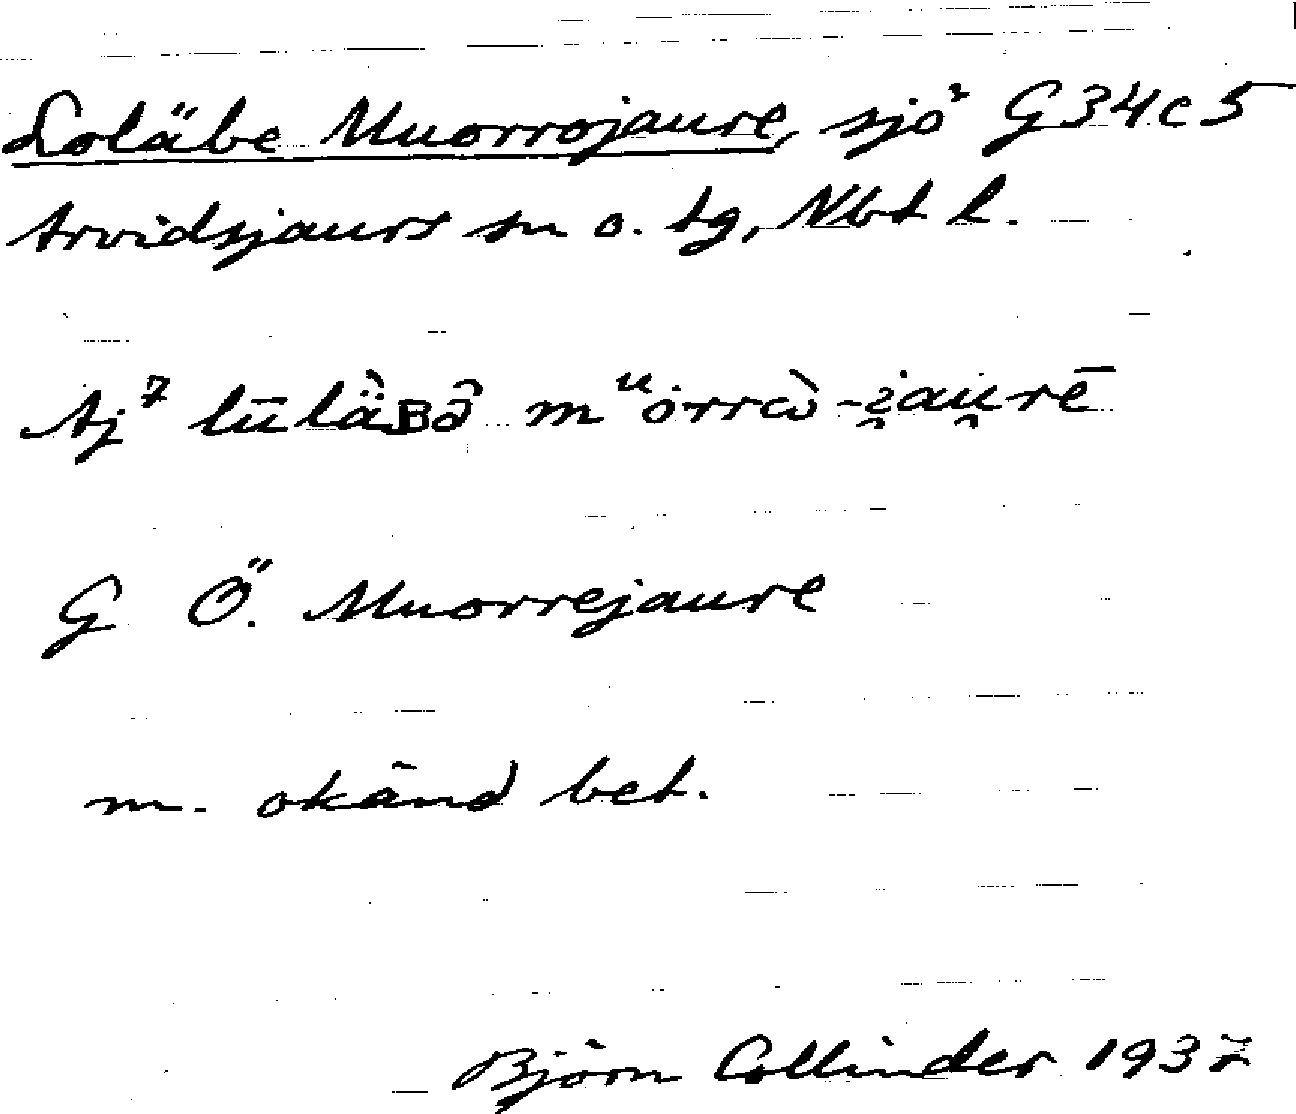 Loläbe Muorrojaure, sjö G34c5
Arvidsjaurs sn o. tg, Nbt l.
Aj 7
G Ö. Muorrejaure
m. okänd bet.
Björn Collinder 1937